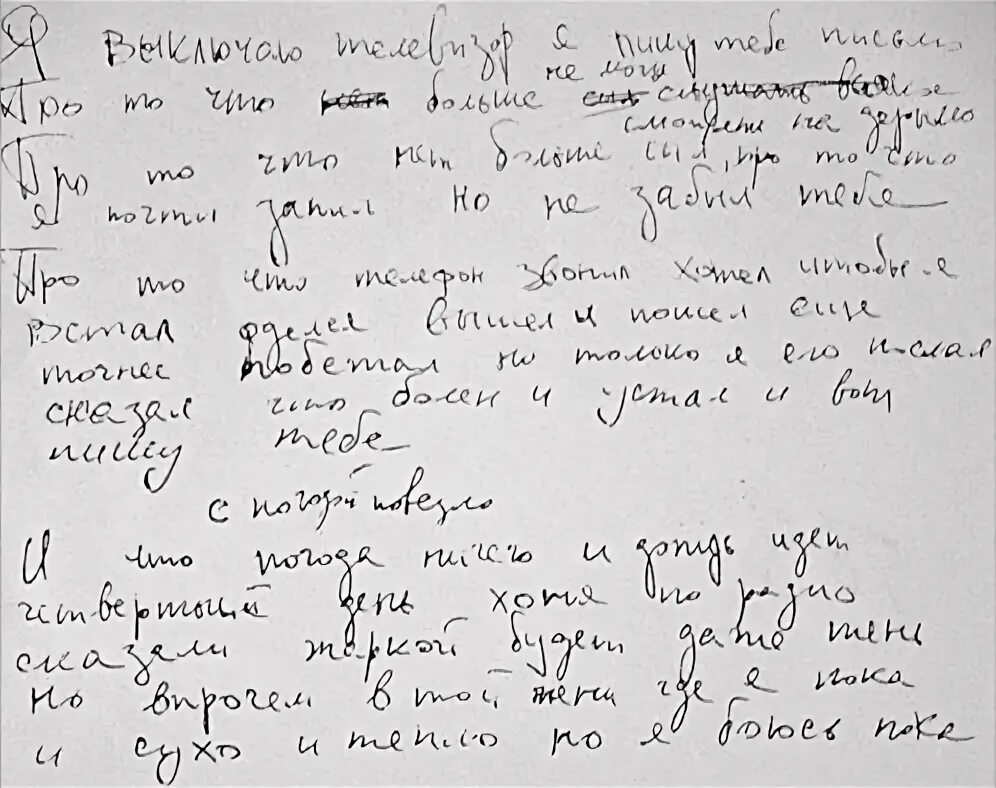 Я выключаю телевизор я пишу тебе письмо
не могу
Про то что больше слушать
смотреть на дерьмо
Про то что нет больше сил, про то что
я почти запил но не забыл тебе
Про то что телефон звонил хотел чтобы я
встал оделся вышел и пошел еще
точнее побежал но только я его послал
сказал что болен и устал и вот
пишу тебе
с погодой повезло
И что погода ничего и дождь идет
четвертый день хотя по радио
сказали жаркой будет даже тень
но впрочем в той тени где я пока
и сухо и тепло но я боюсь пока